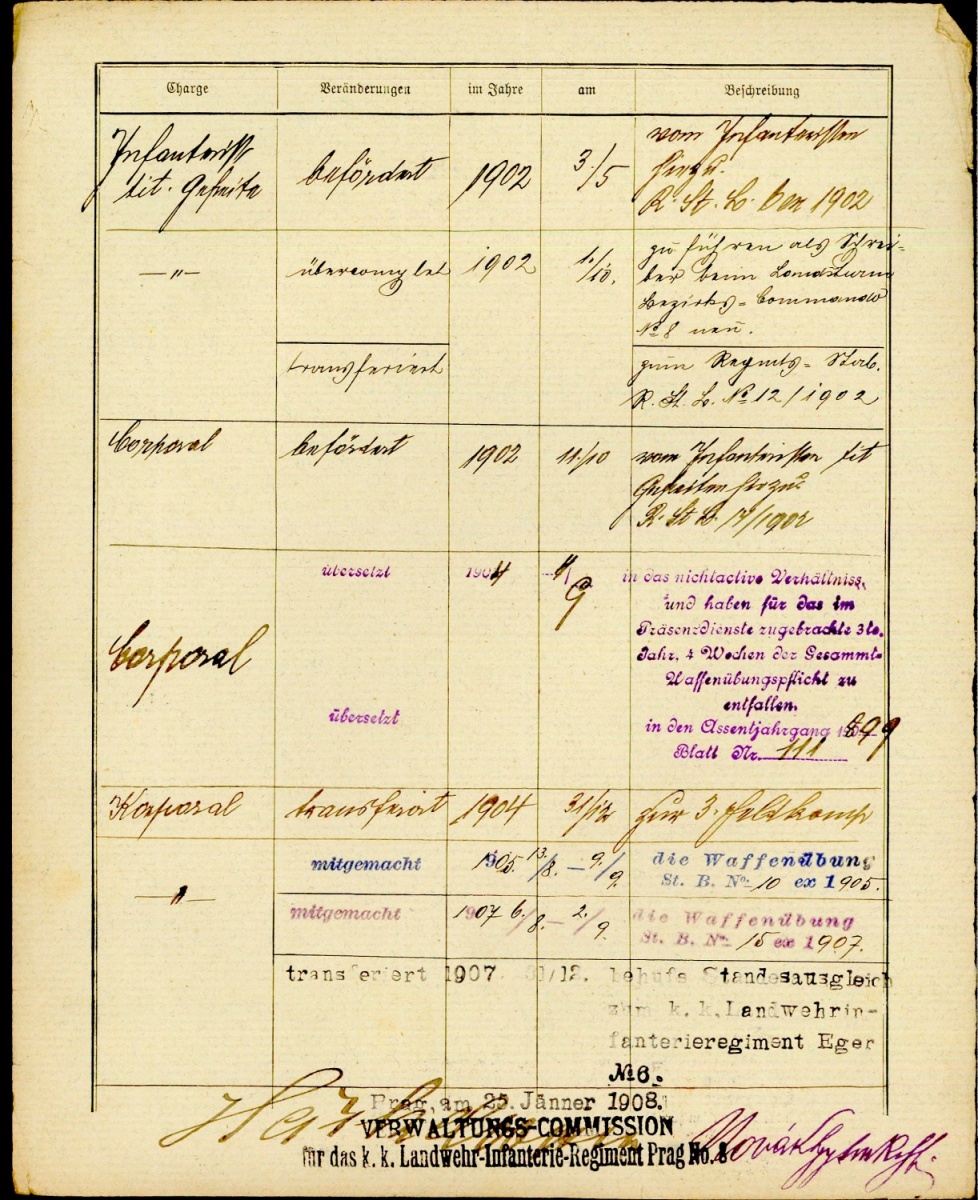 Charge Veränderungen im Jahre am Beschreibung
Infanterist befördert 1902 3./5 vom Infanteristen
tit. Gefreite hiezu.
R. St. B. 1902
—"— übercomplet 1902 1./10. zu führen als Schrei=
ber beim Landsturm
Bezirks=Commando
№ 8 neu.
transferiert zum Regmts=Stab.
R. St. B. № 12/1902
Corporal befördert 1902 11./10 vom Infanteristen tit
Gefreiten hiezu
R. St. B. 17/1902
übersetzt 1904 1/9 in das nichtactive Verhältniss,
und haben für das im
Präsenzdienste zugebrachte 3te.
Corporal Jahr, 4 Wochen der Gesammt=
Waffenübungspflicht zu
entfallen.
übersetzt in den Assentjahrgang 1899
Blatt Nr. 111
Korporal transferirt 1904 31/12 zur 3. Feldkomp
mitgemacht 1905 13./8. – 9./9. die Waffenübung
—"— St. B. No: 10 ex 1905.
mitgemacht 1907 6./8. – 2./9. die Waffenübung
St. B. No: 15 ex 1907.
transferiert 1907 31/12. behufs Standesausgleich
zum k. k. Landwehrin-
fanterieregiment Eger
№6.
Prag, am 25. Jänner 1908.
VERWALTUNGS-COMMISSION
für das k. k. Landwehr-Infanterie-Regiment Prag No. 8